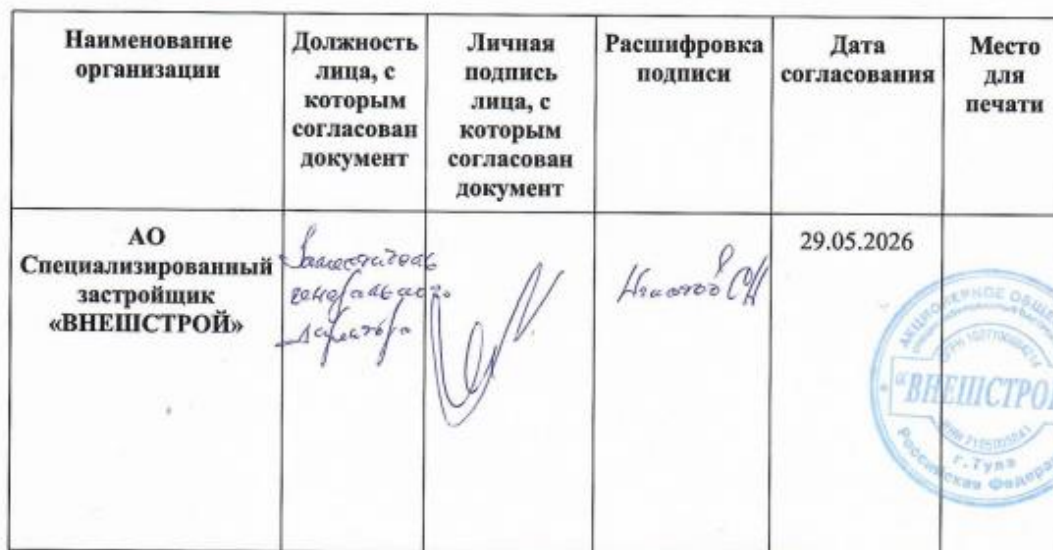 Наименование
организации
Должность
лица, с
которым
согласован
документ
Личная
подпись
лица, с
которым
согласован
документ
Расшифровка
подписи
Дата
согласования
Место
для
печати
АО
Специализированный
застройщик
«ВНЕШСТРОЙ»
Заместитель
генерального
директора
29.05.2026
АКЦИОНЕРНОЕ ОБЩЕ
"ВНЕШСТРО
г. Тула
Российская Федера